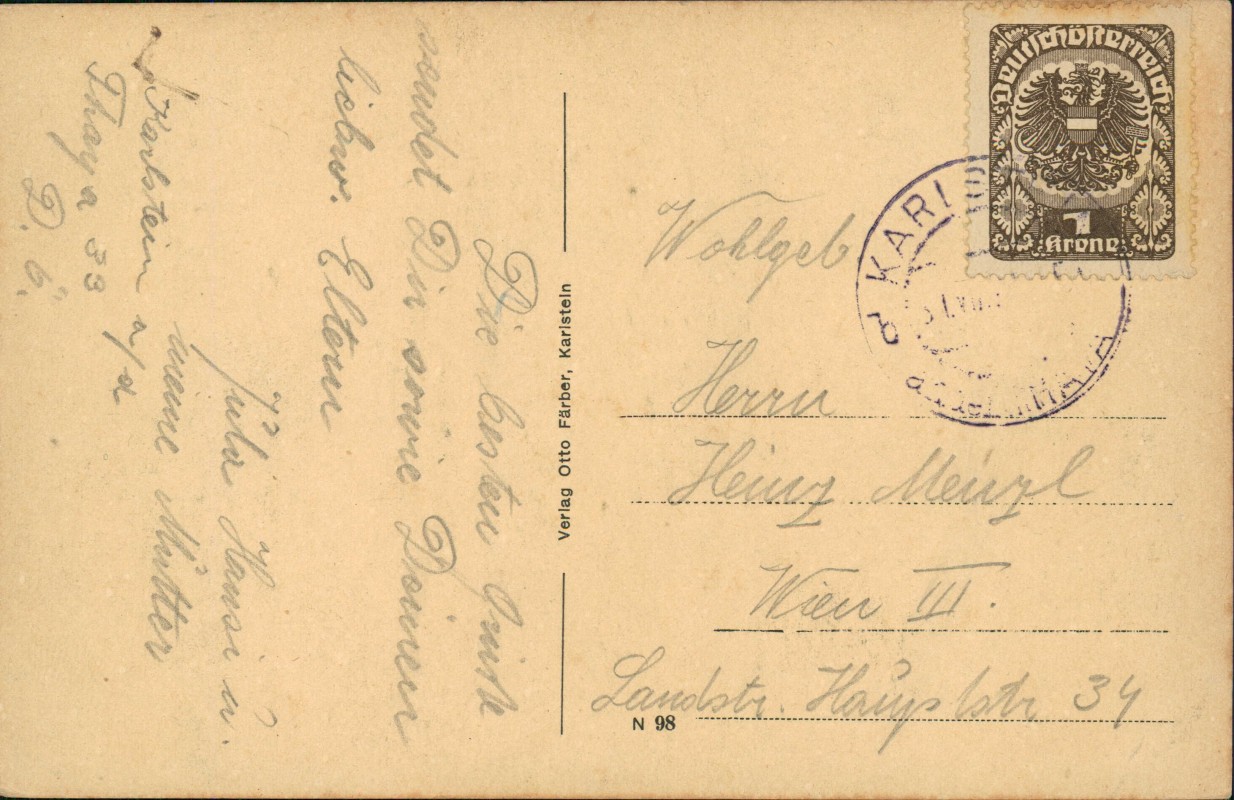 Die besten Grüße
sendet Dir sowie Deinen
liebw. Eltern
Hansi u.
meine Mutter
Karlstein a/d
Thaya 33
D. Ö.
Verlag Otto Färber, Karlstein
Deutschösterreich
1
Krone
Wohlgeb
Herrn
Heinz Menzl
Wien III.
Landstr. Hauptstr 34
N 98